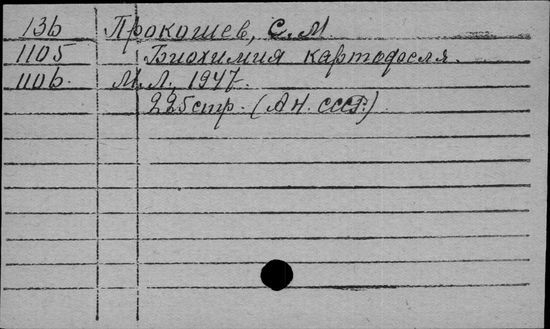 13b Прокошев, С. М.
1105 Биохимия картофеля.
110b. М. Л. 1947.
225 стр. (АН. СССР.)